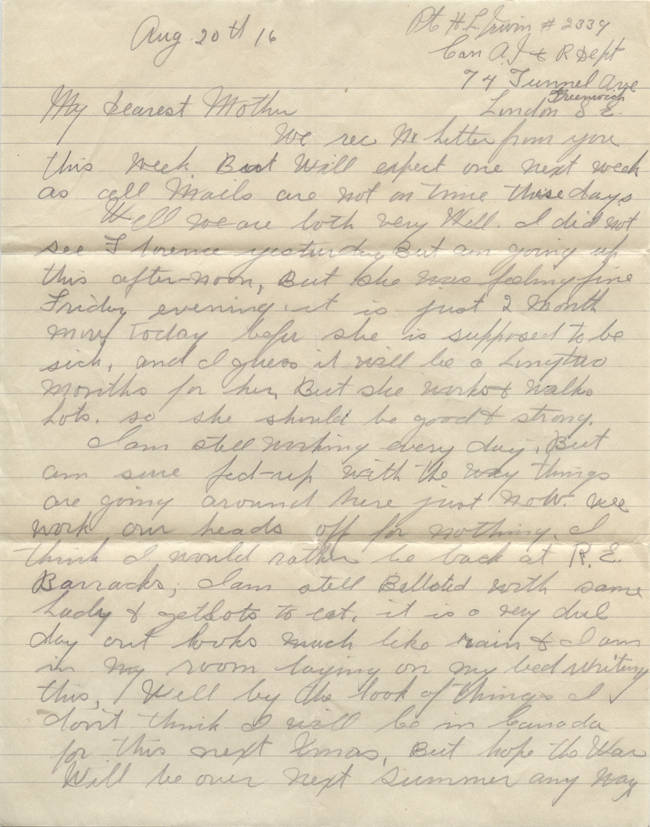 Aug 20th 16
Pte H. L. Irwin # 2339
Can A. J & R Dept
74 Tunnel Ave
Greenwich
London S E.
My Dearest Mother
We rec No letter from you
this week. But Will expect one next week
as all Mails are not on time these days
Well we are both very Well. I did not
see Florence yesterday But am going up
this after-noon, But she was feeling fine
Friday evening. it is just 2 Month
more today before she is supposed to be
sick, and I guess it will be a Long two
Months for her, But she works & Walks
Lots. so she should be good & strong.
I am still working every day. But
am sure fed-up with the way things
are going around here just now. We
work our heads off for nothing. I
think I would rather be back at R. E.
Barracks, I am still Billoted with same
Lady & get Lots to eat. it is a very dul
day out looks much like rain & I am
in my room laying on my bed writing
this, Well by the look of things I
don't think I will be in Canada
for this next Xmas, But hope the War
Will be over next Summer any way